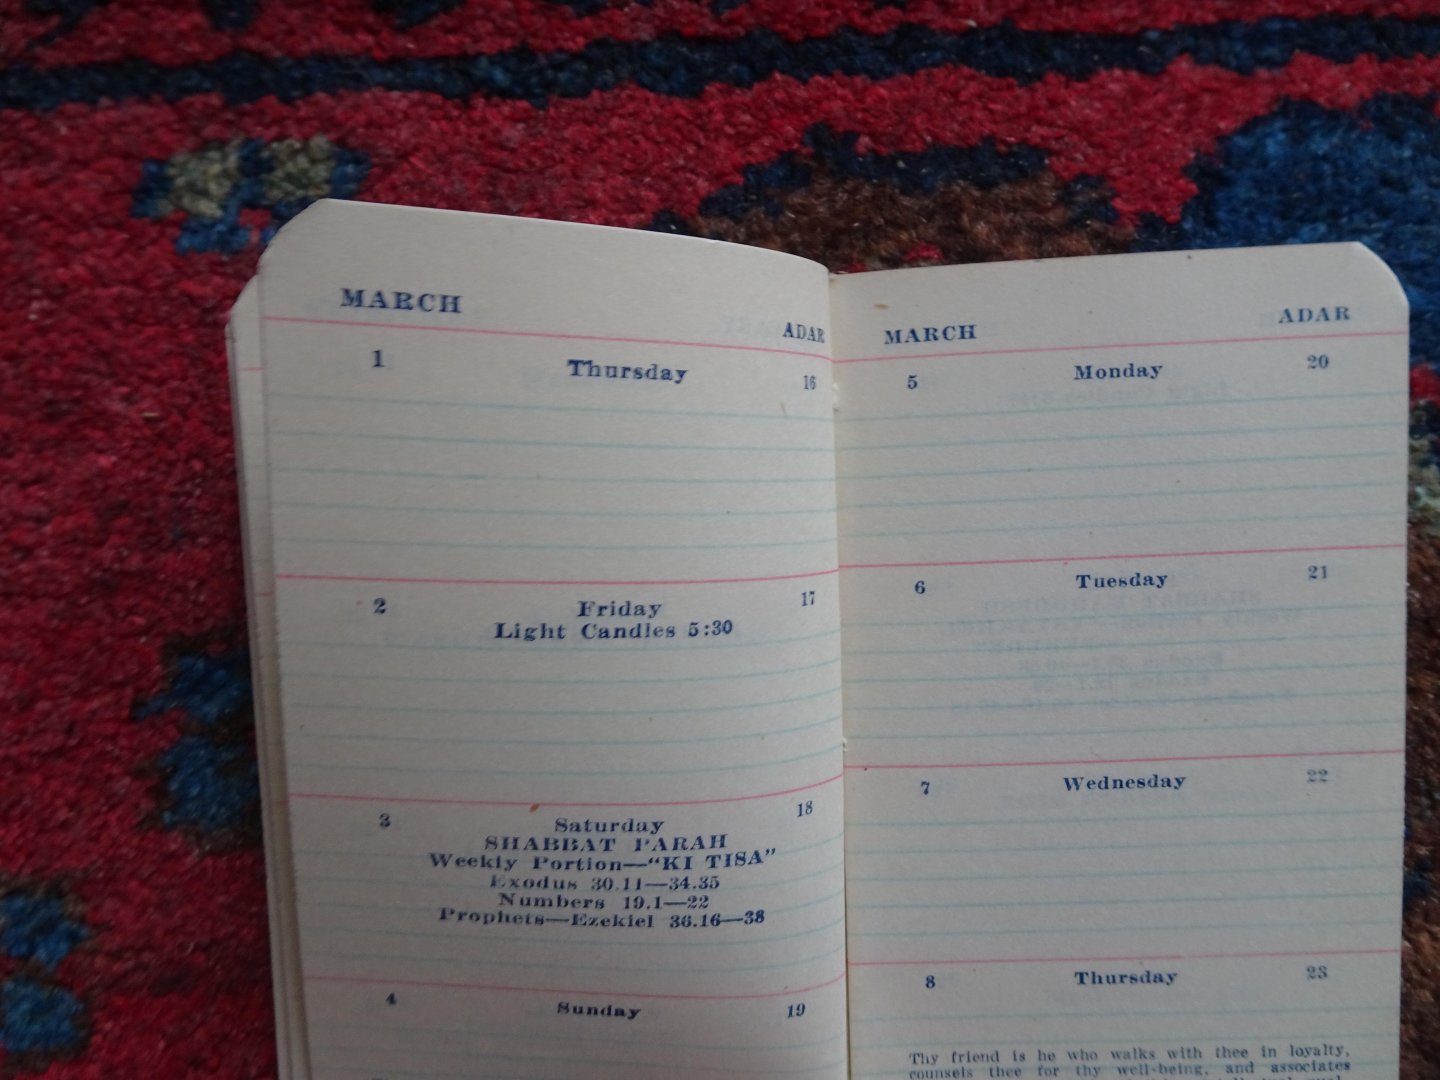 MARCH ADAR
1 Thursday 16
2 Friday 17
Light Candles 5:30
3 Saturday 18
SHABBAT PARAH
Weekly Portion—"KI TISA"
Exodus 30.11—34.35
Numbers 19.1—22
Prophets—Ezekiel 36.16—38
4 Sunday 19
MARCH ADAR
5 Monday 20
6 Tuesday 21
7 Wednesday 22
8 Thursday 23
Thy friend is he who walks with thee in loyalty,
counsels thee for thy well-being, and associates